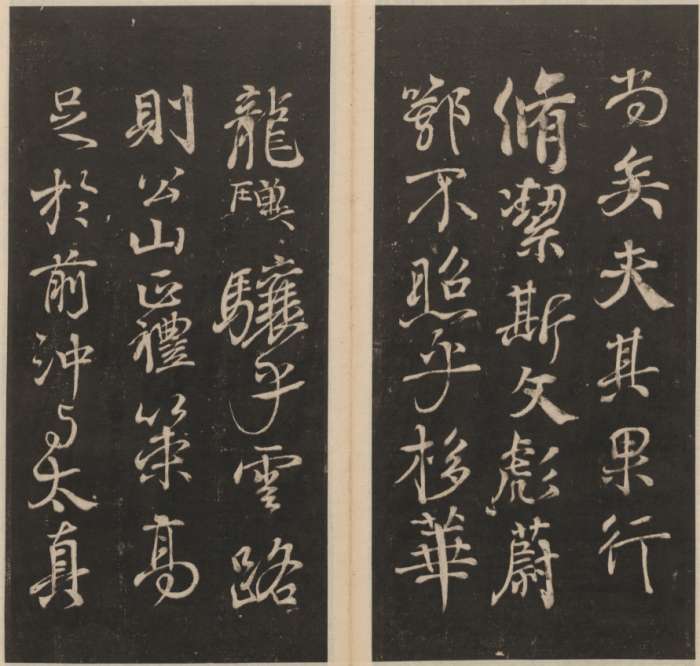 尚矣夫其果行
脩潔斯文彪蔚
鄂不照乎栘華
龍驥驤乎雲路
則公山正禮策高
足於前沖与太真